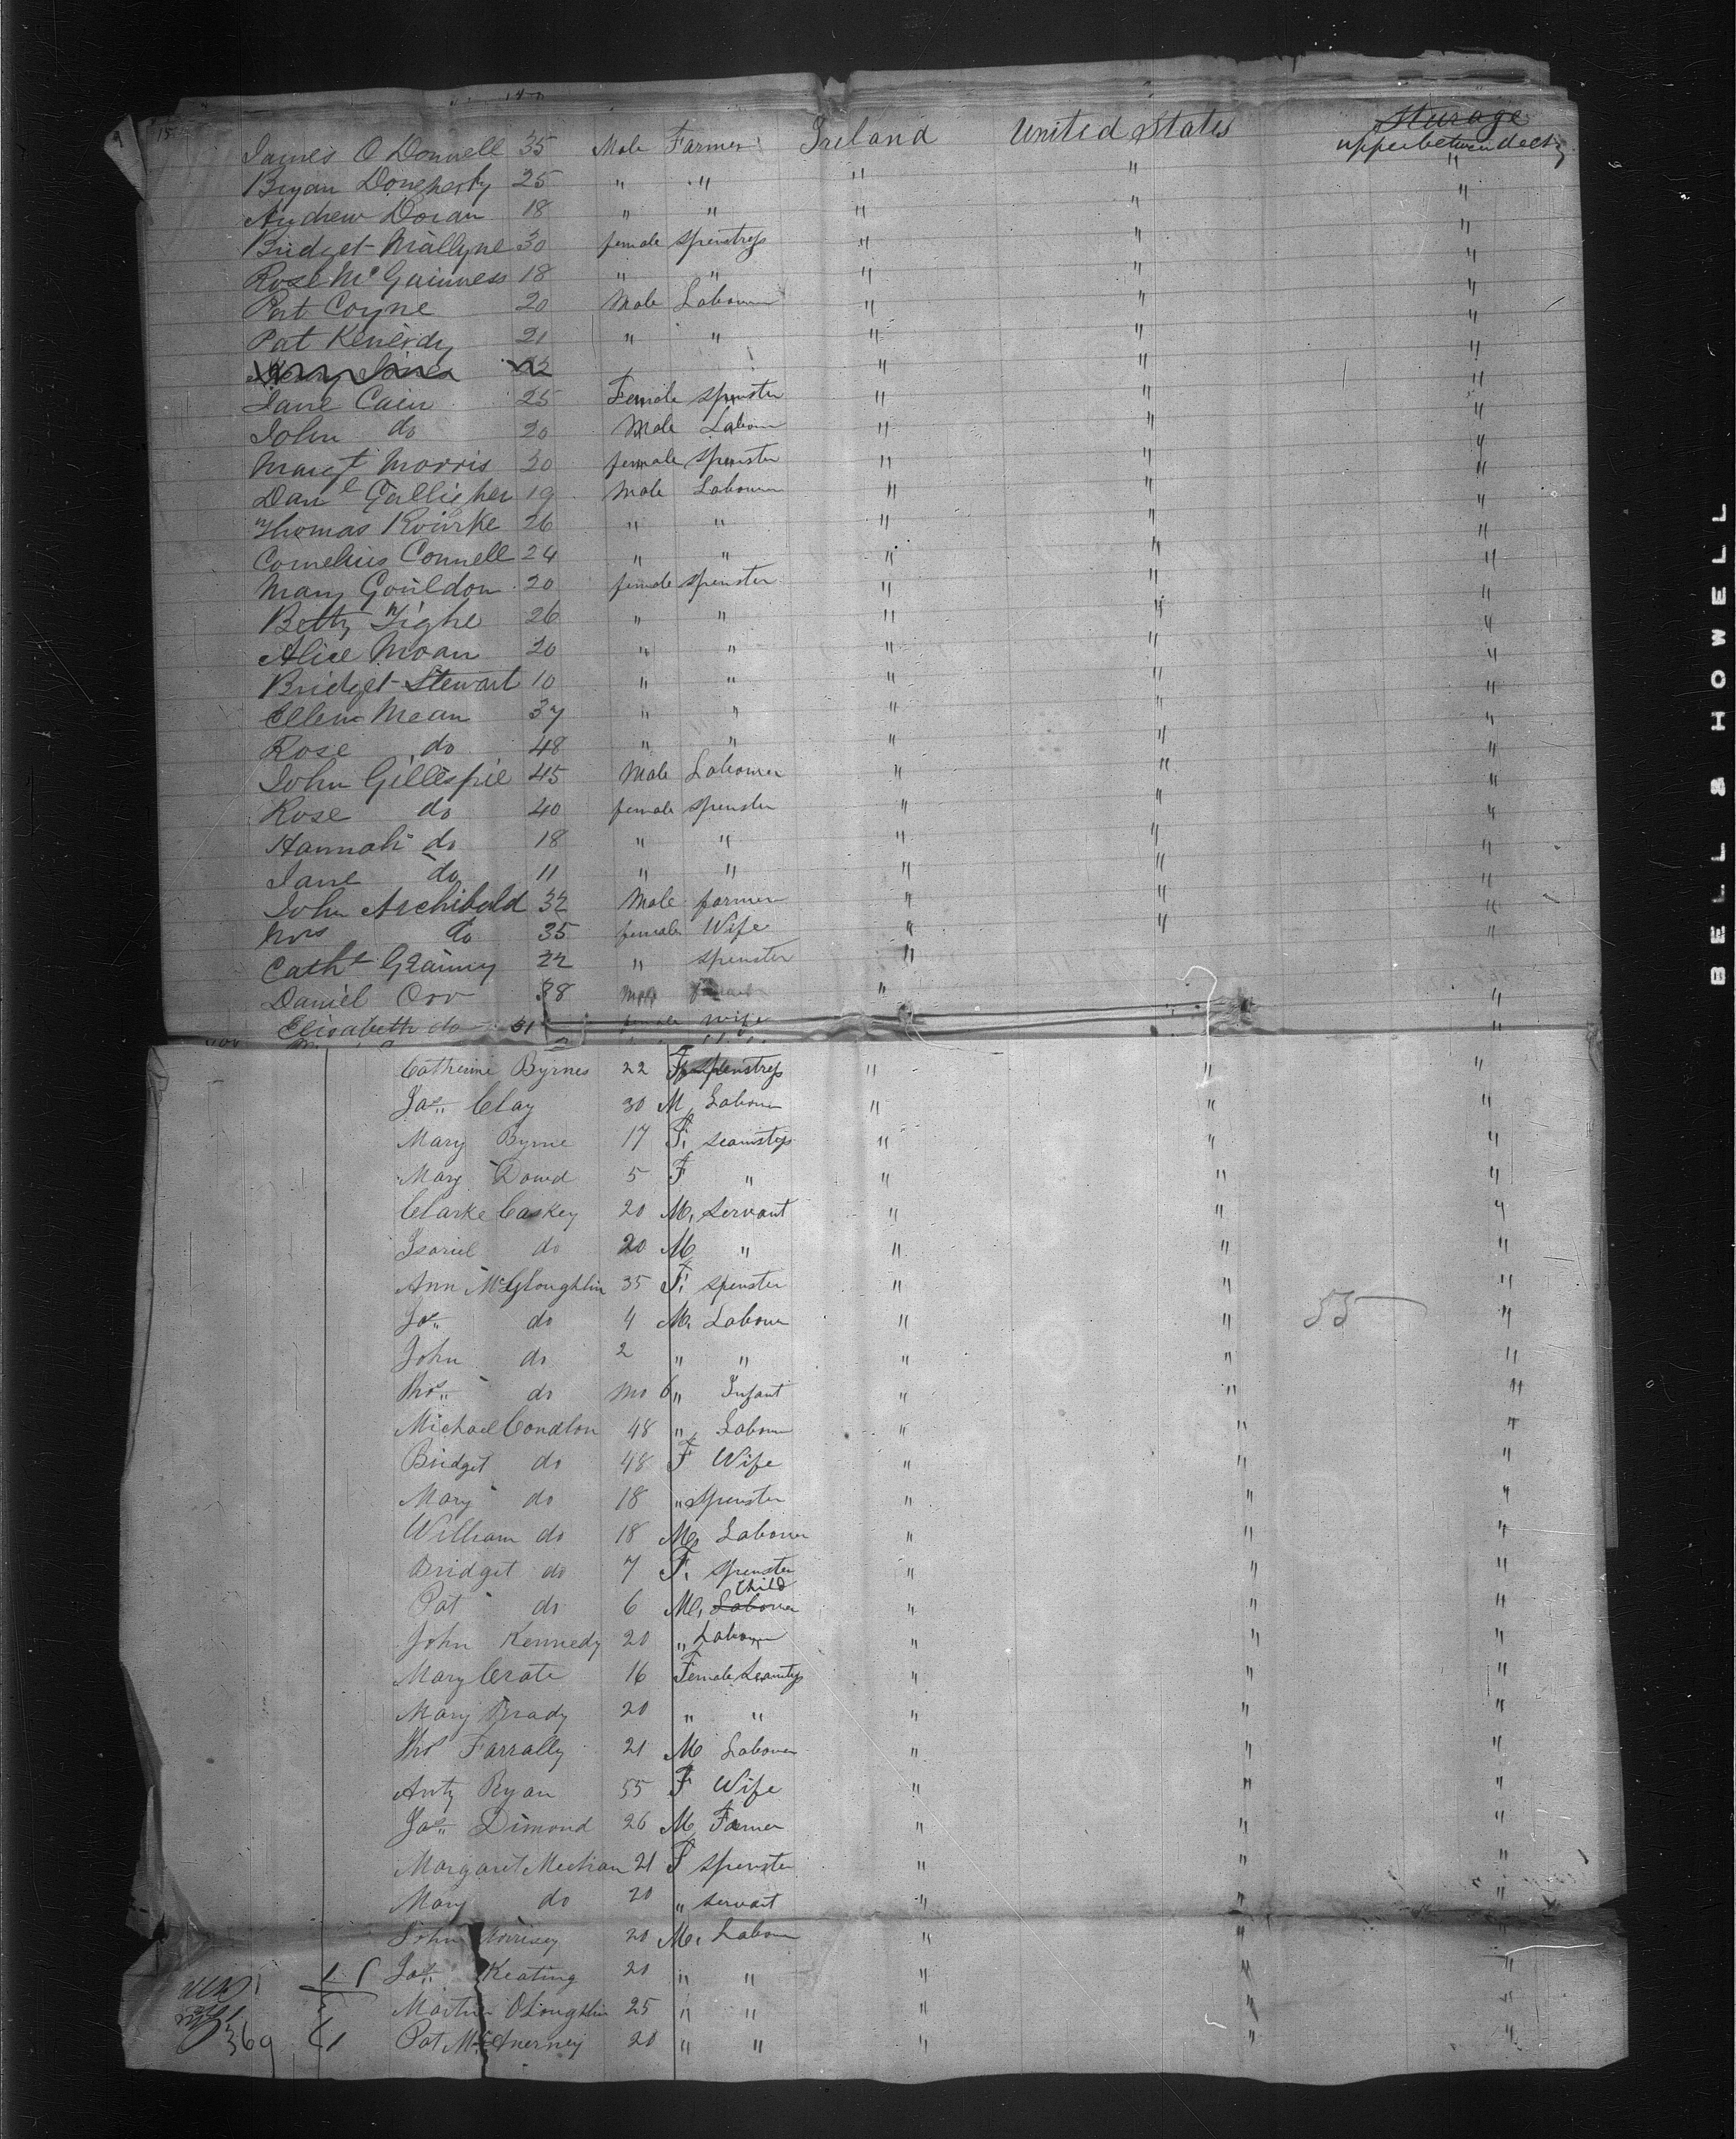 James O Donnell 35 Male Farmer Ireland United States Sturage
upper between decks
Bryan Dougherty 25 " " " " "
Andrew Doran 18 " " " " "
Bridget Mallyne 30 female spinstress " " "
Rose McGuinness 18 " " " " "
Pat Coyne 20 Male Labourer " " "
Pat Kenerdy 21 " " " " "
Jane Cain 25 Female spinster " " "
John do 20 Male Labour " " "
Margt Morris 20 female spinster " " "
Danl Galligher 19 Male Labourer " " "
Thomas Rourke 26 " " " " "
Cornelius Connell 24 " " " " "
Mary Gouldon 20 female spinster " " "
Betty Tighe 26 " " " " "
Alice Moan 20 " " " " "
Bridget Stewart 10 " " " " "
Ellen Moan 37 " " " " "
Rose do 48 " " " " "
John Gillespie 45 Male Labourer " " "
Rose do 40 female spinster " " "
Hannah do 18 " " " " "
Jane do 11 " " " " "
John Archibald 32 Male farmer " " "
Mrs do 35 female Wife " " "
Cathe Granny 22 " spinster "
Daniel Orr 38 " "
Elisabeth do 31 female wife "
Catherine Byrnes 22 F spinstress " " "
Jas Clay 30 M Labourer " " "
Mary Byrne 17 F. seamstress " " "
Mary Dowd 5 F " " " "
Clarke Caskey 20 M. Servant " " "
Isariel do 20 M " " " "
Ann McGloughlin 35 F. spinster " " "
55
Jas do 4 M. Labour " " "
John do 2 " " " " "
Thos do mo 6 " Infant " " "
Michael Condlon 48 " Labour " " "
Bridget do 48 F Wife " " "
Mary do 18 " spinster " " "
William do 18 M. Labourer " " "
Bridget do 7 F. spinster " " "
Child
Pat do 6 M. Labourer " " "
John Kennedy 20 " Labourer " " "
Mary Crate 16 Female Seamstress " " "
Mary Brady 20 " " " " "
Thos Farrally 21 M Labourer " " "
Anty Ryan 55 F Wife " " "
Jas Dimond 26 M Farmer " " "
Margaret Meehan 21 F spinster " " "
Mary do 20 " servant " " "
John Morrisey 20 M. Labour " " "
Jas Keating 20 " " " " "
Martin OLoughlin 25 " " " " "
369 Pat McInerney 20 " " " " "
BELL & HOWELL